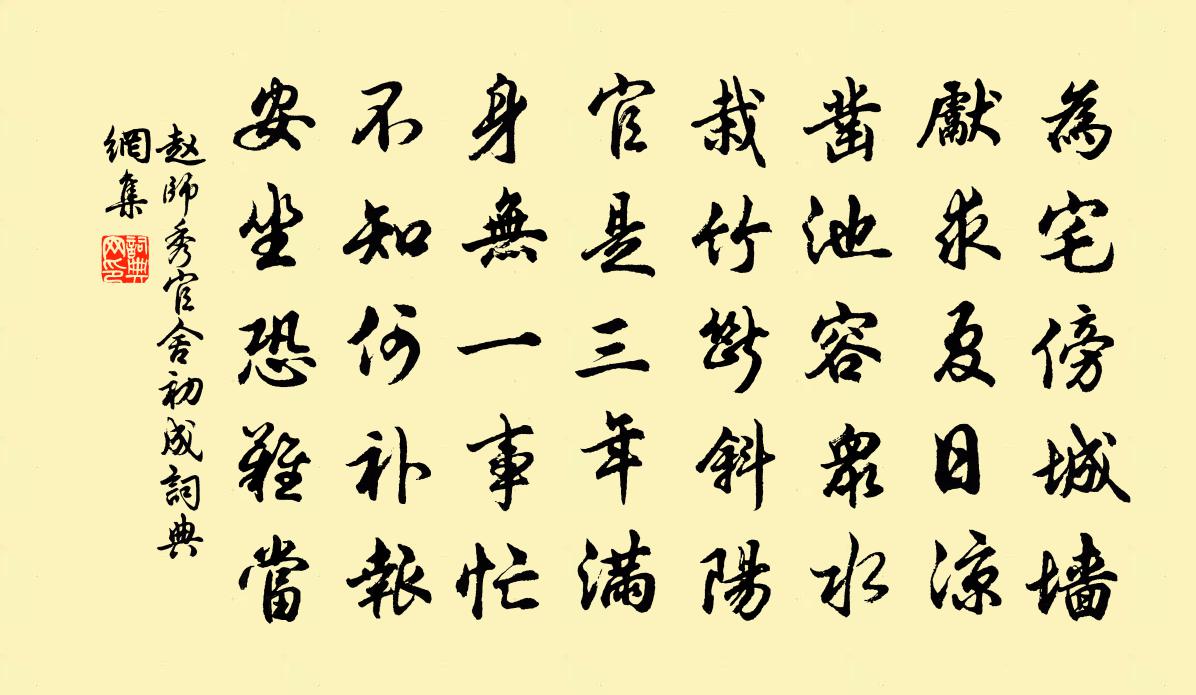 為宅傍城墙
獻求夏日凉
凿池容眾水
栽竹斷斜陽
官是三年滿
身無一事忙
不知何补報
安坐恐難當
赵師秀官舍初成詞典
網集
詞典
网印